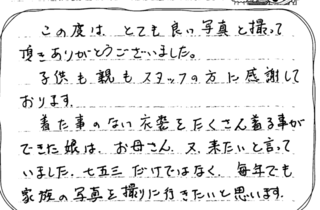 この度は とても良い写真と撮って
頂きありがとうございました。
子供も親もスタッフの方に感謝して
おります。
着た事のない衣装をたくさん着る事が
できた娘は、お母さん、又、来たいと言って
いました。七五三だけではなく、毎年でも
家族の写真を撮りに行きたいと思います。